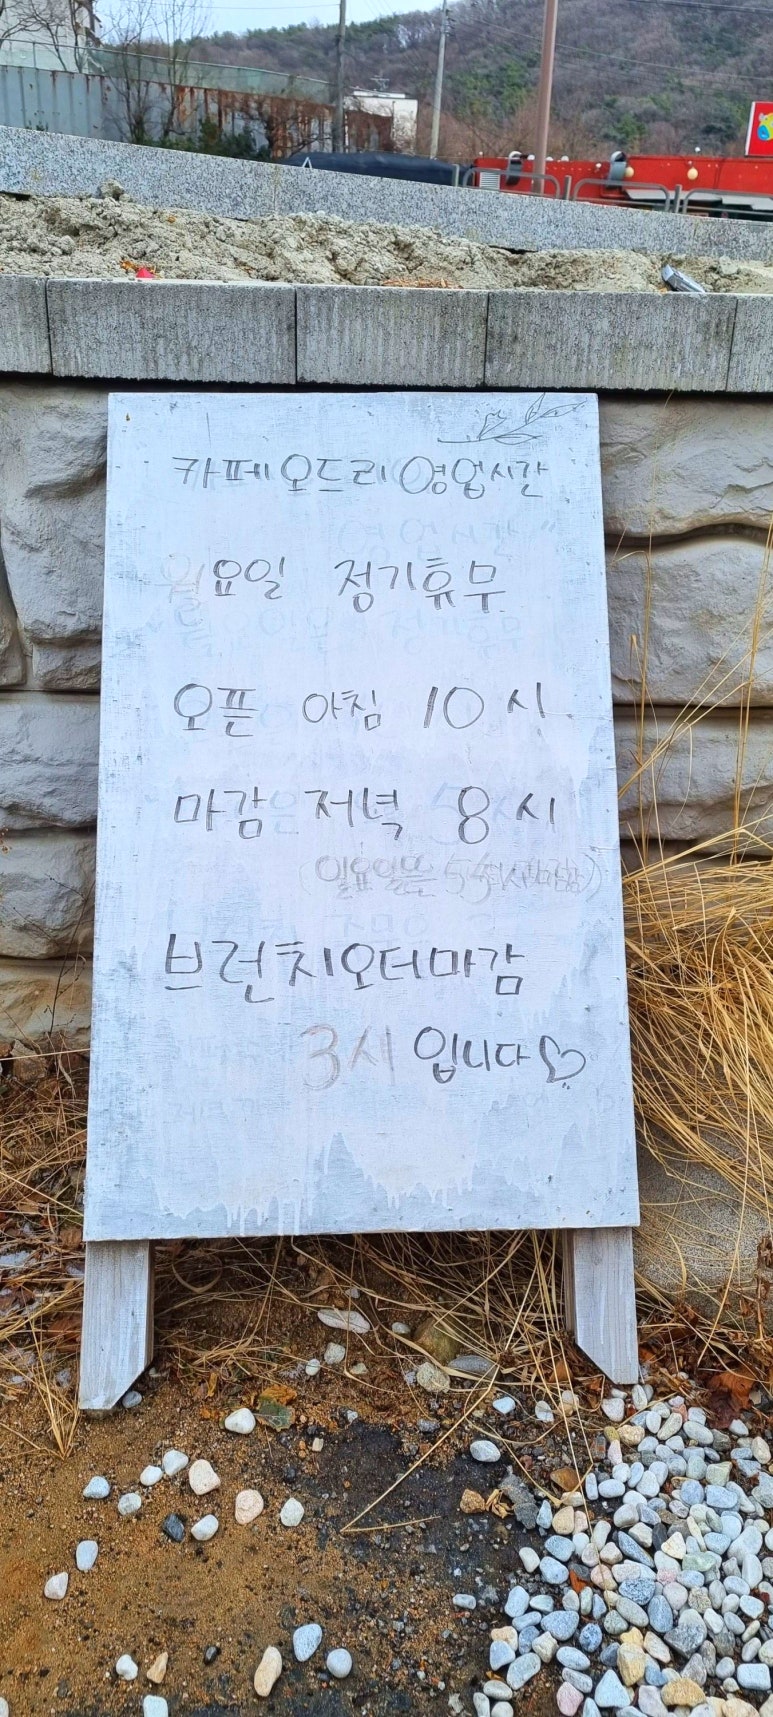 카페오드리영업시간
월요일 정기휴무
오픈 아침 10시
마감 저녁 8시
(일요일은
브런치오더마감
3시 입니다♡